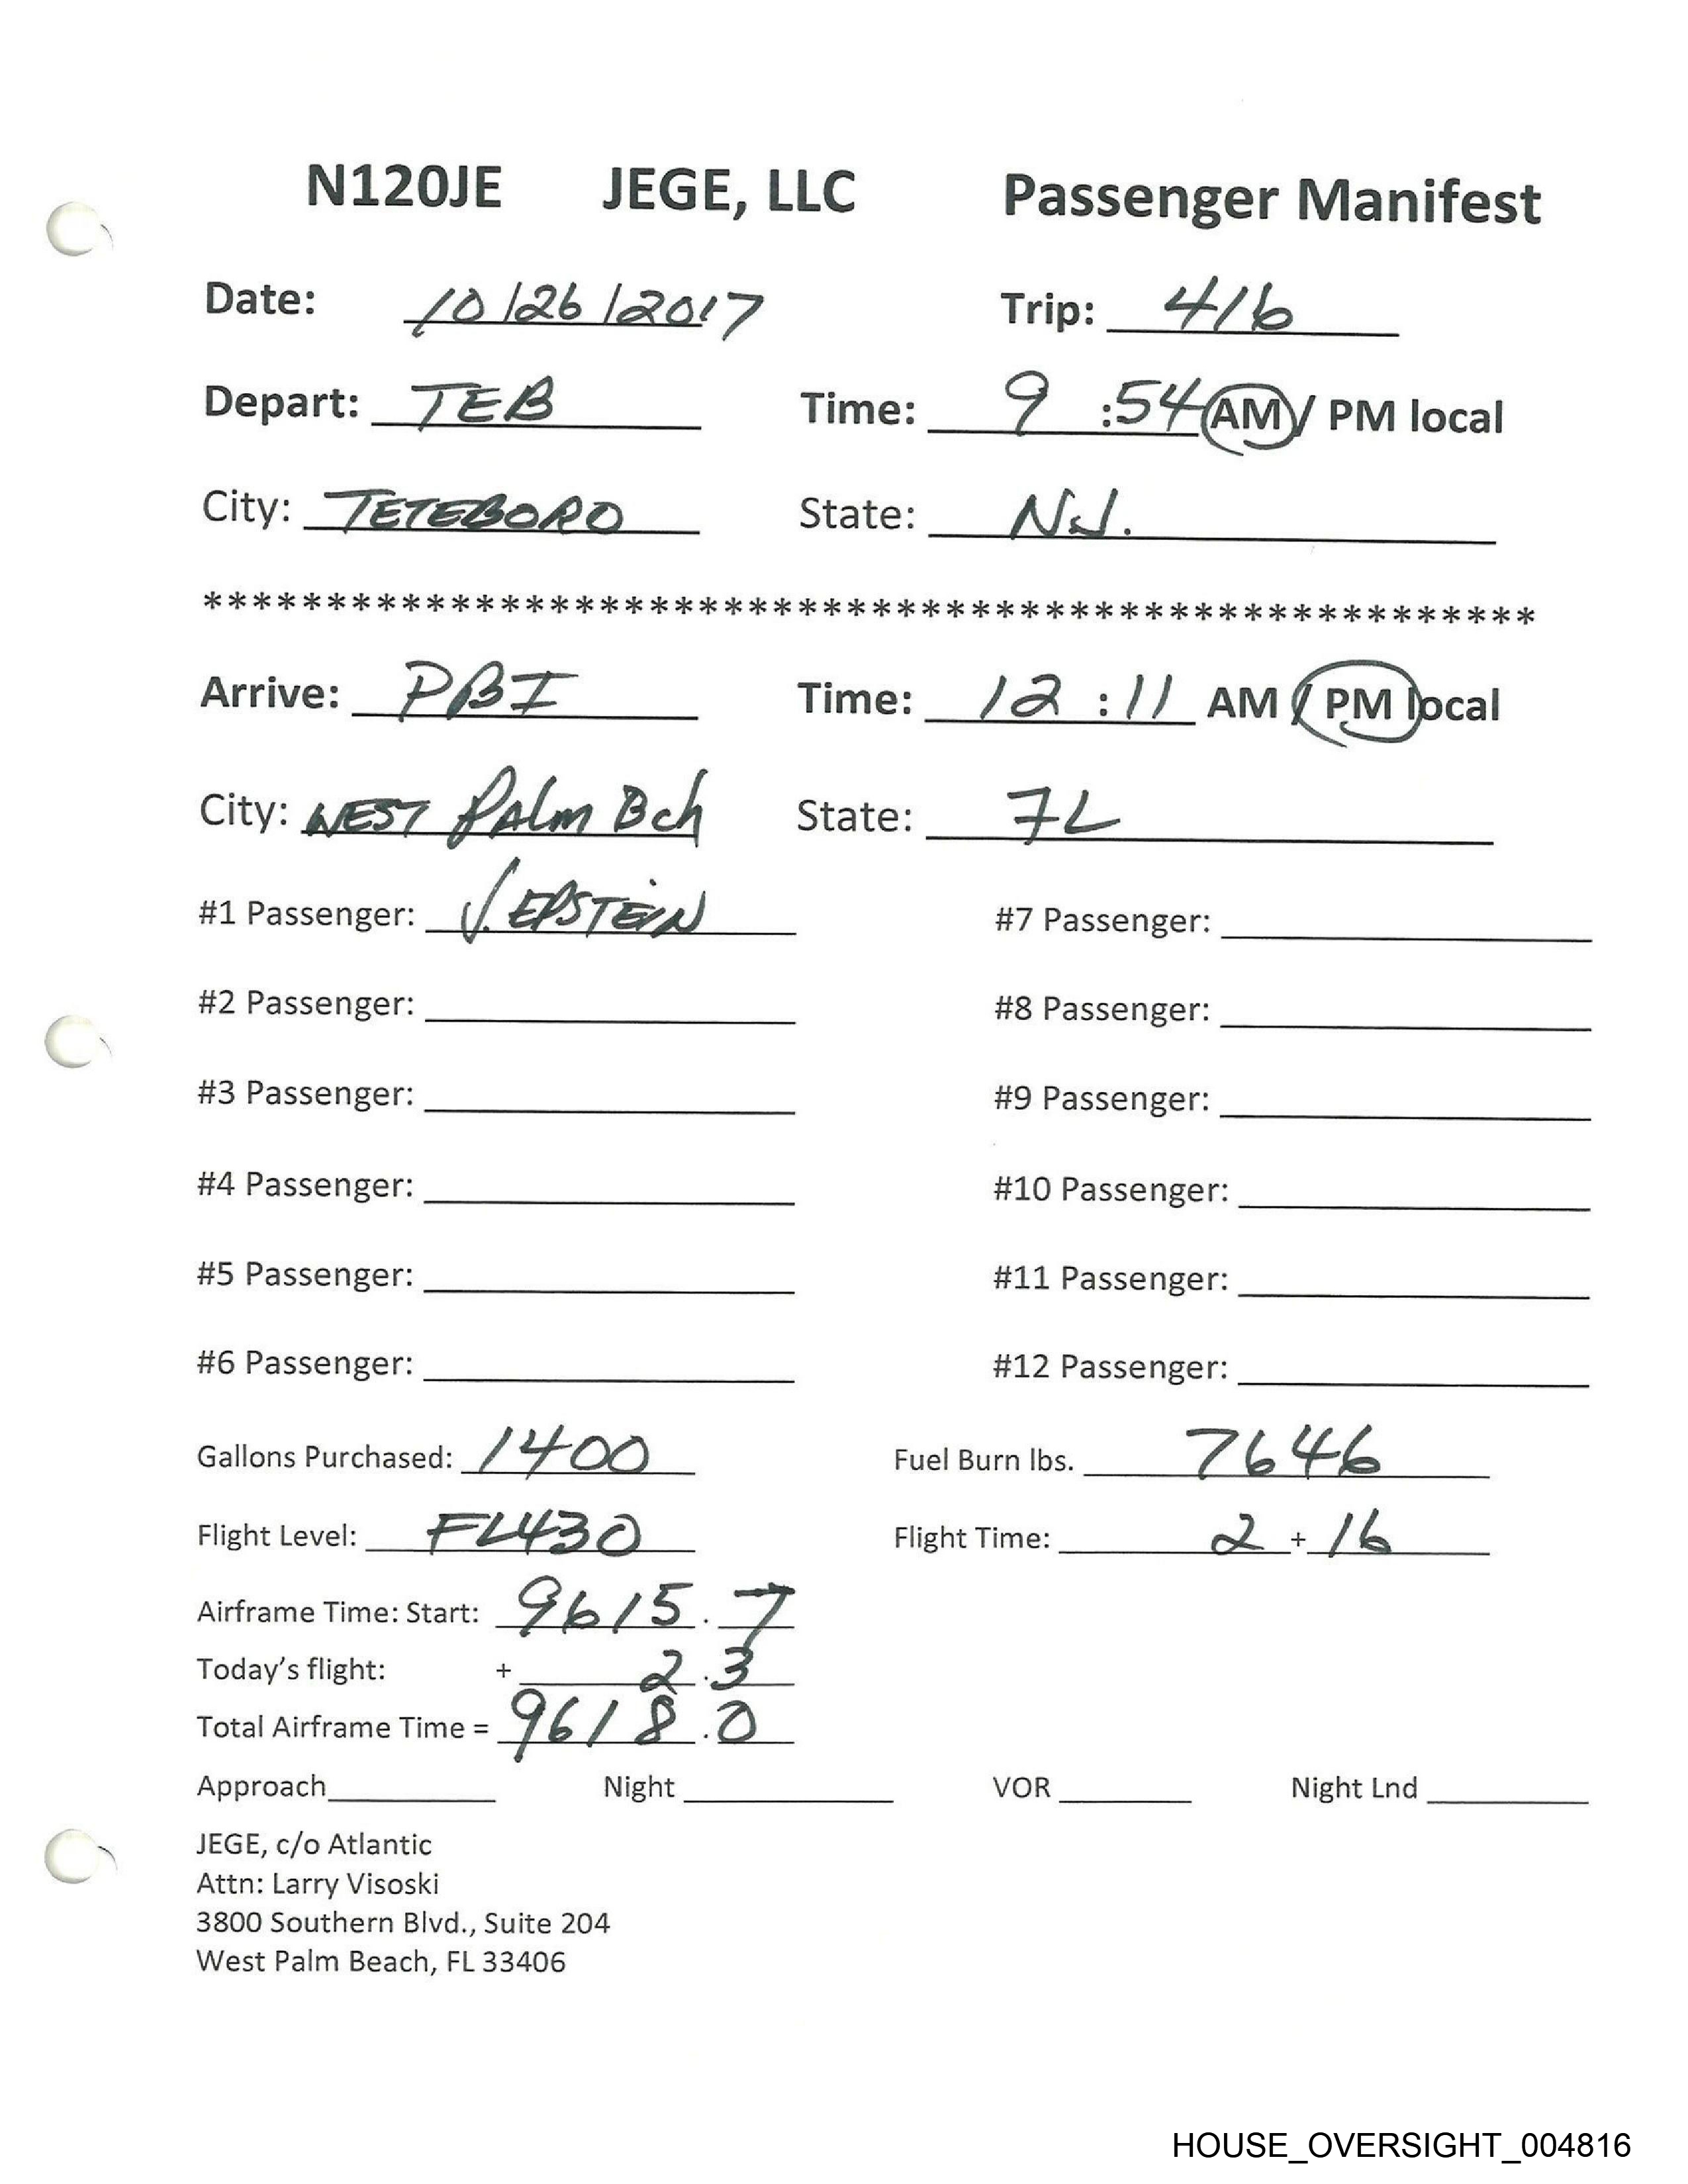 N120JE JEGE, LLC Passenger Manifest
Date: 10/26/2017 Trip: 416
Depart: TEB Time: 9:54 AM / PM local
City: TETEBORO State: N.J.
******************************************************
Arrive: PBI Time: 12:11 AM / PM local
City: WEST PALM Bch State: FL
#1 Passenger: J. EPSTEIN #7 Passenger:
#2 Passenger: #8 Passenger:
#3 Passenger: #9 Passenger:
#4 Passenger: #10 Passenger:
#5 Passenger: #11 Passenger:
#6 Passenger: #12 Passenger:
Gallons Purchased: 1400 Fuel Burn lbs. 7646
Flight Level: FL430 Flight Time: 2 + 16
Airframe Time: Start: 9615.7
Today's flight: + 2.3
Total Airframe Time = 9618.0
Approach Night VOR Night Lnd
JEGE, c/o Atlantic
Attn: Larry Visoski
3800 Southern Blvd., Suite 204
West Palm Beach, FL 33406
HOUSE_OVERSIGHT_004816